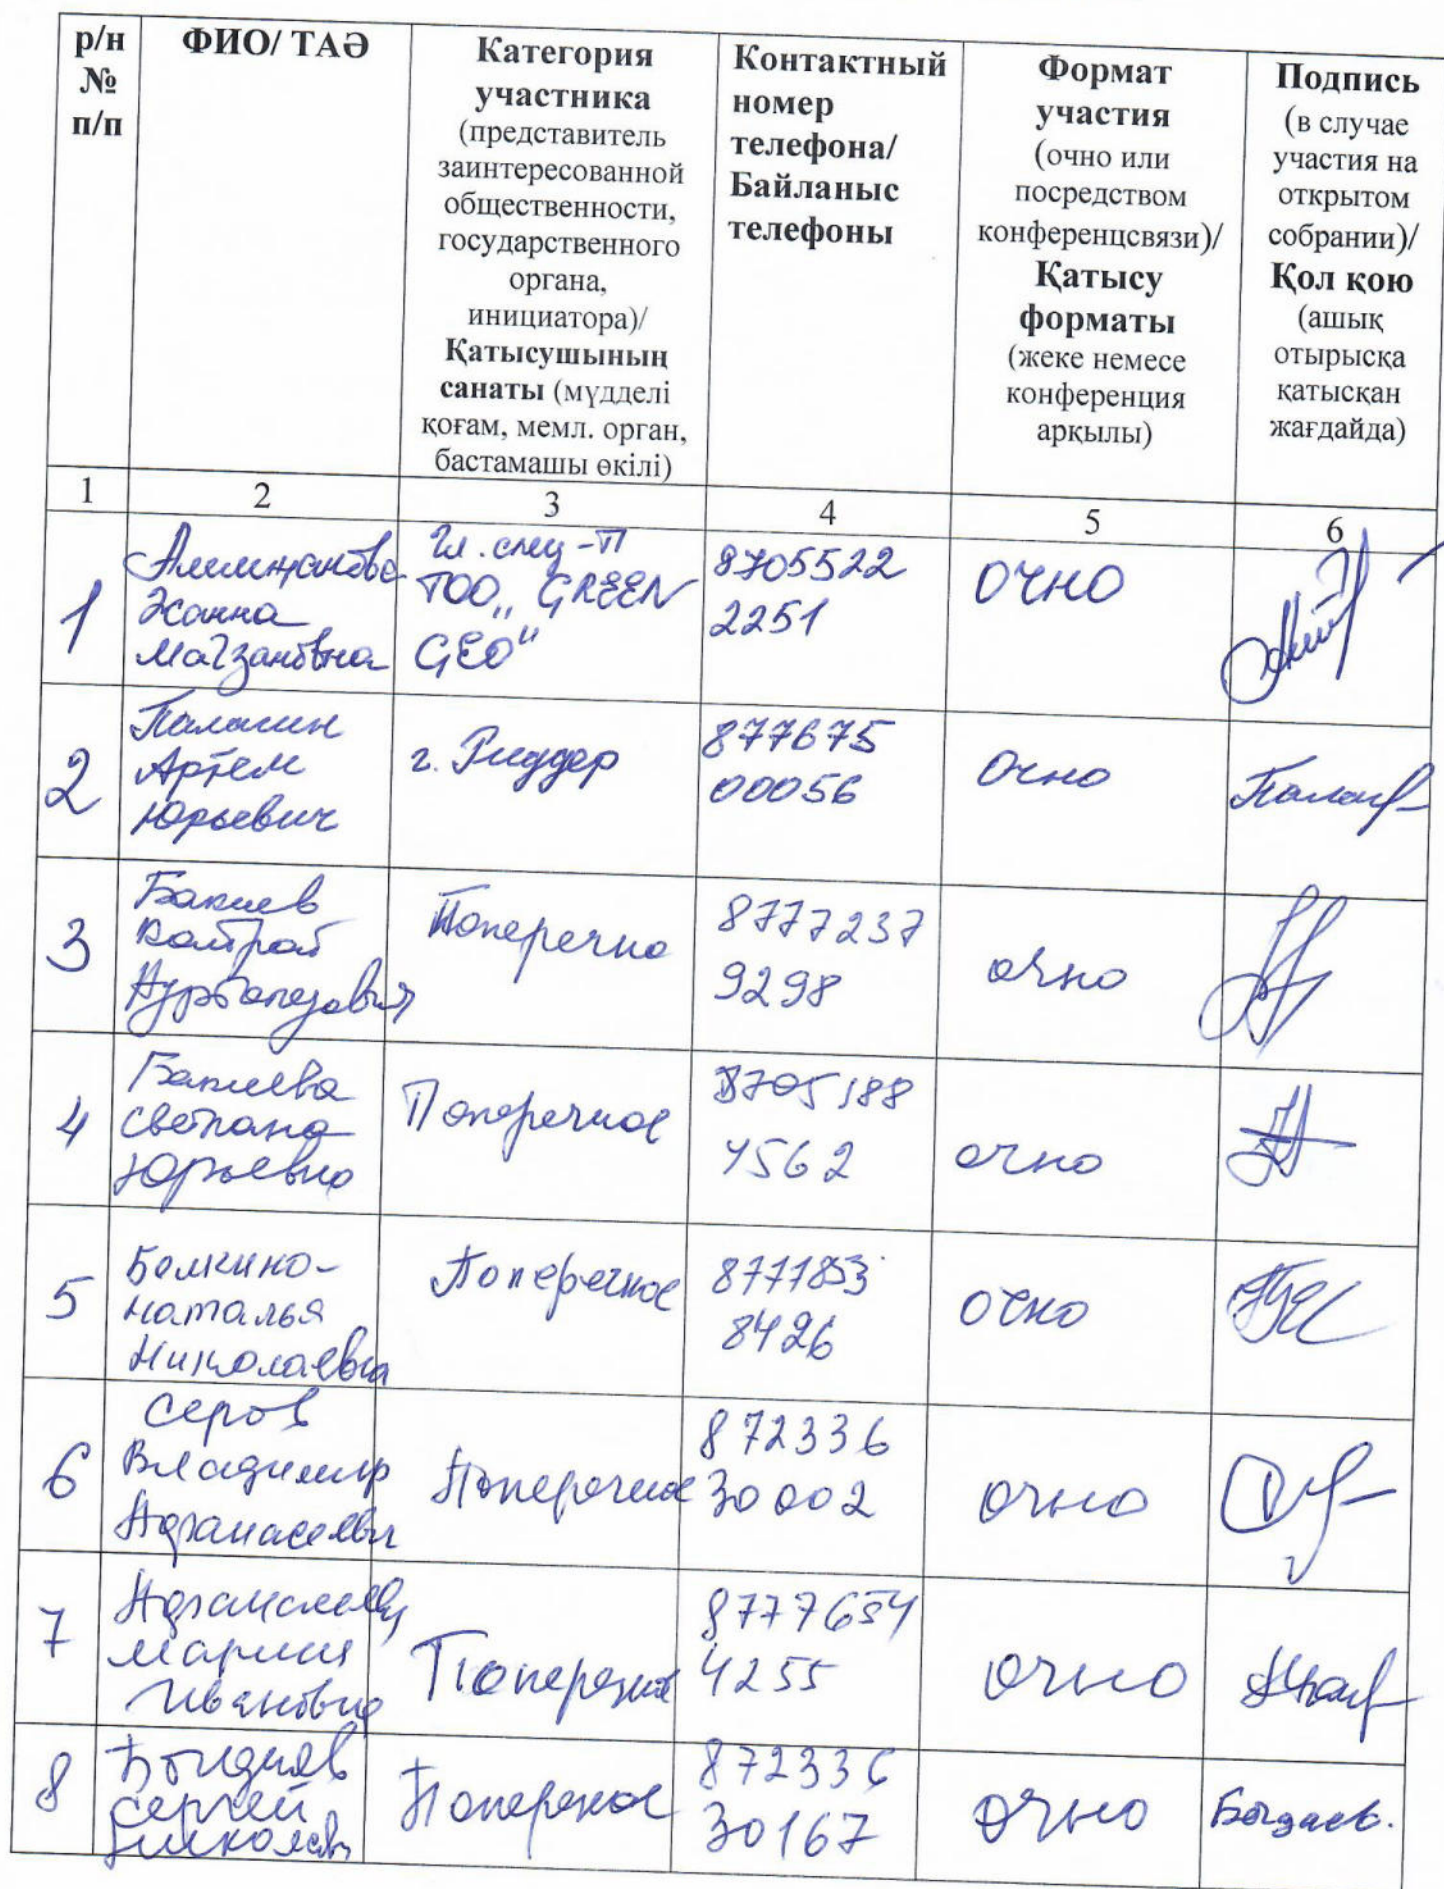 р/н
№
п/п
ФИО/ ТАӘ
Категория
участника
(представитель
заинтересованной
общественности,
государственного
органа,
инициатора)/
Қатысушының
санаты (мүдделі
қоғам, мемл. орган,
бастамашы өкілі)
Контактный
номер
телефона/
Байланыс
телефоны
Формат
участия
(очно или
посредством
конференцсвязи)/
Қатысу
форматы
(жеке немесе
конференция
арқылы)
Подпись
(в случае
участия на
открытом
собрании)/
Қол қою
(ашық
отырысқа
қатысқан
жағдайда)
1
2
3
4
5
6
1
Алимжанова
Жанна
Магзановна
Гл. спец-
ТОО „GREEN
GEO"
8705522
2251
очно
2
Паламин
Артем
Юрьевич
г. Риддер
877675
00056
очно
3
Бакиев
Поперечно
8777237
9298
очно
4
Бакиева
Светлана
Юрьевна
Поперечное
8705188
4562
очно
5
Наталья
Николаевна
Поперечное
8777853
8426
очно
6
Серов
Владимир
Афанасьевич
Поперечное
872336
30002
очно
7
Мария
Ивановна
Поперечное
8777654
4255
очно
8
Сергей
Поперечное
872336
30167
очно